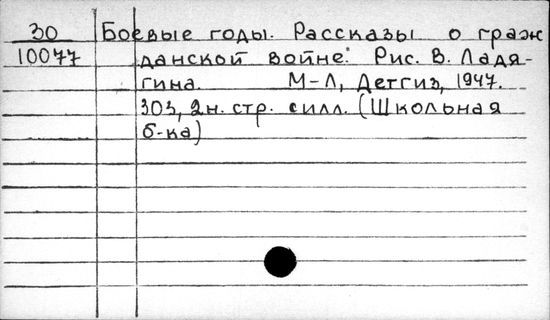 30 Боевые годы. Рассказы о граж
10077 данской войне. Рис. В. Ладя-
гина. М-Л, Детгиз, 1947.
303, 2н. стр. силл. (Школьная
б-ка)